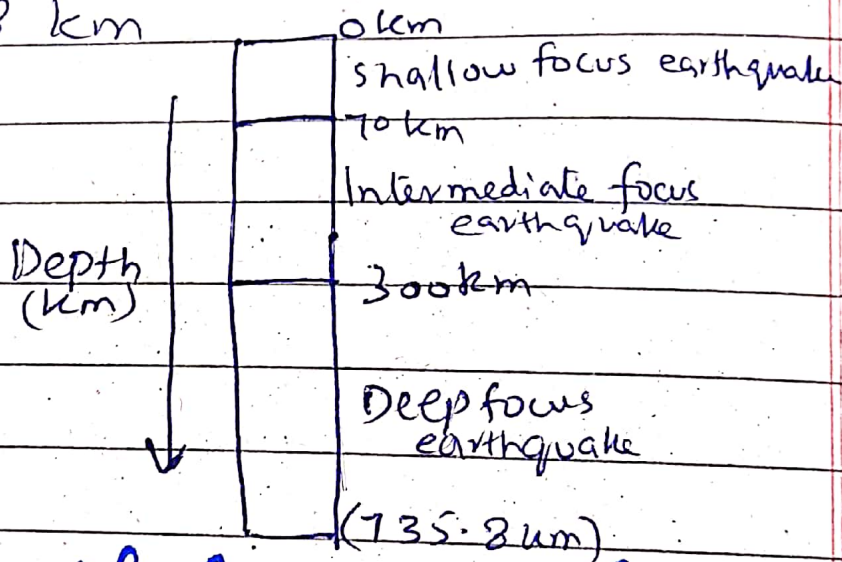 km
0 km
Shallow focus earthquake
70 km
Intermediate focus
earthquake
Depth
(km)
300km
Deep focus
earthquake
(735.8 km)